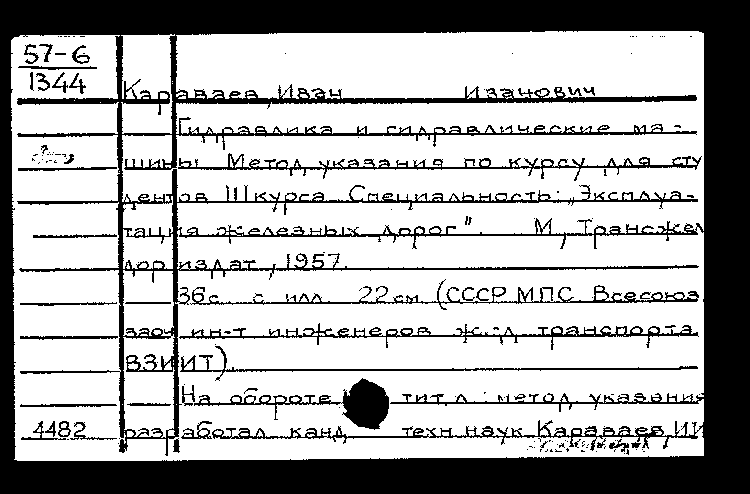 57-6
1344
Караваев, Иван Иванович
Гидравлика и гидравлические ма-
шины. Метод. указания по курсу для сту
дентов III курса. Специальность: „Эксплуа-
тация железных дорог". М, Трансжел
дориздат, 1957.
36с. с илл. 22см. (СССР. МПС. Всесоюз.
заоч. ин-т инженеров ж.-д. транспорта.
ВЗИИТ).
На обороте тит. л.: метод. указания
4482 разработал канд. техн. наук Караваев ИИ